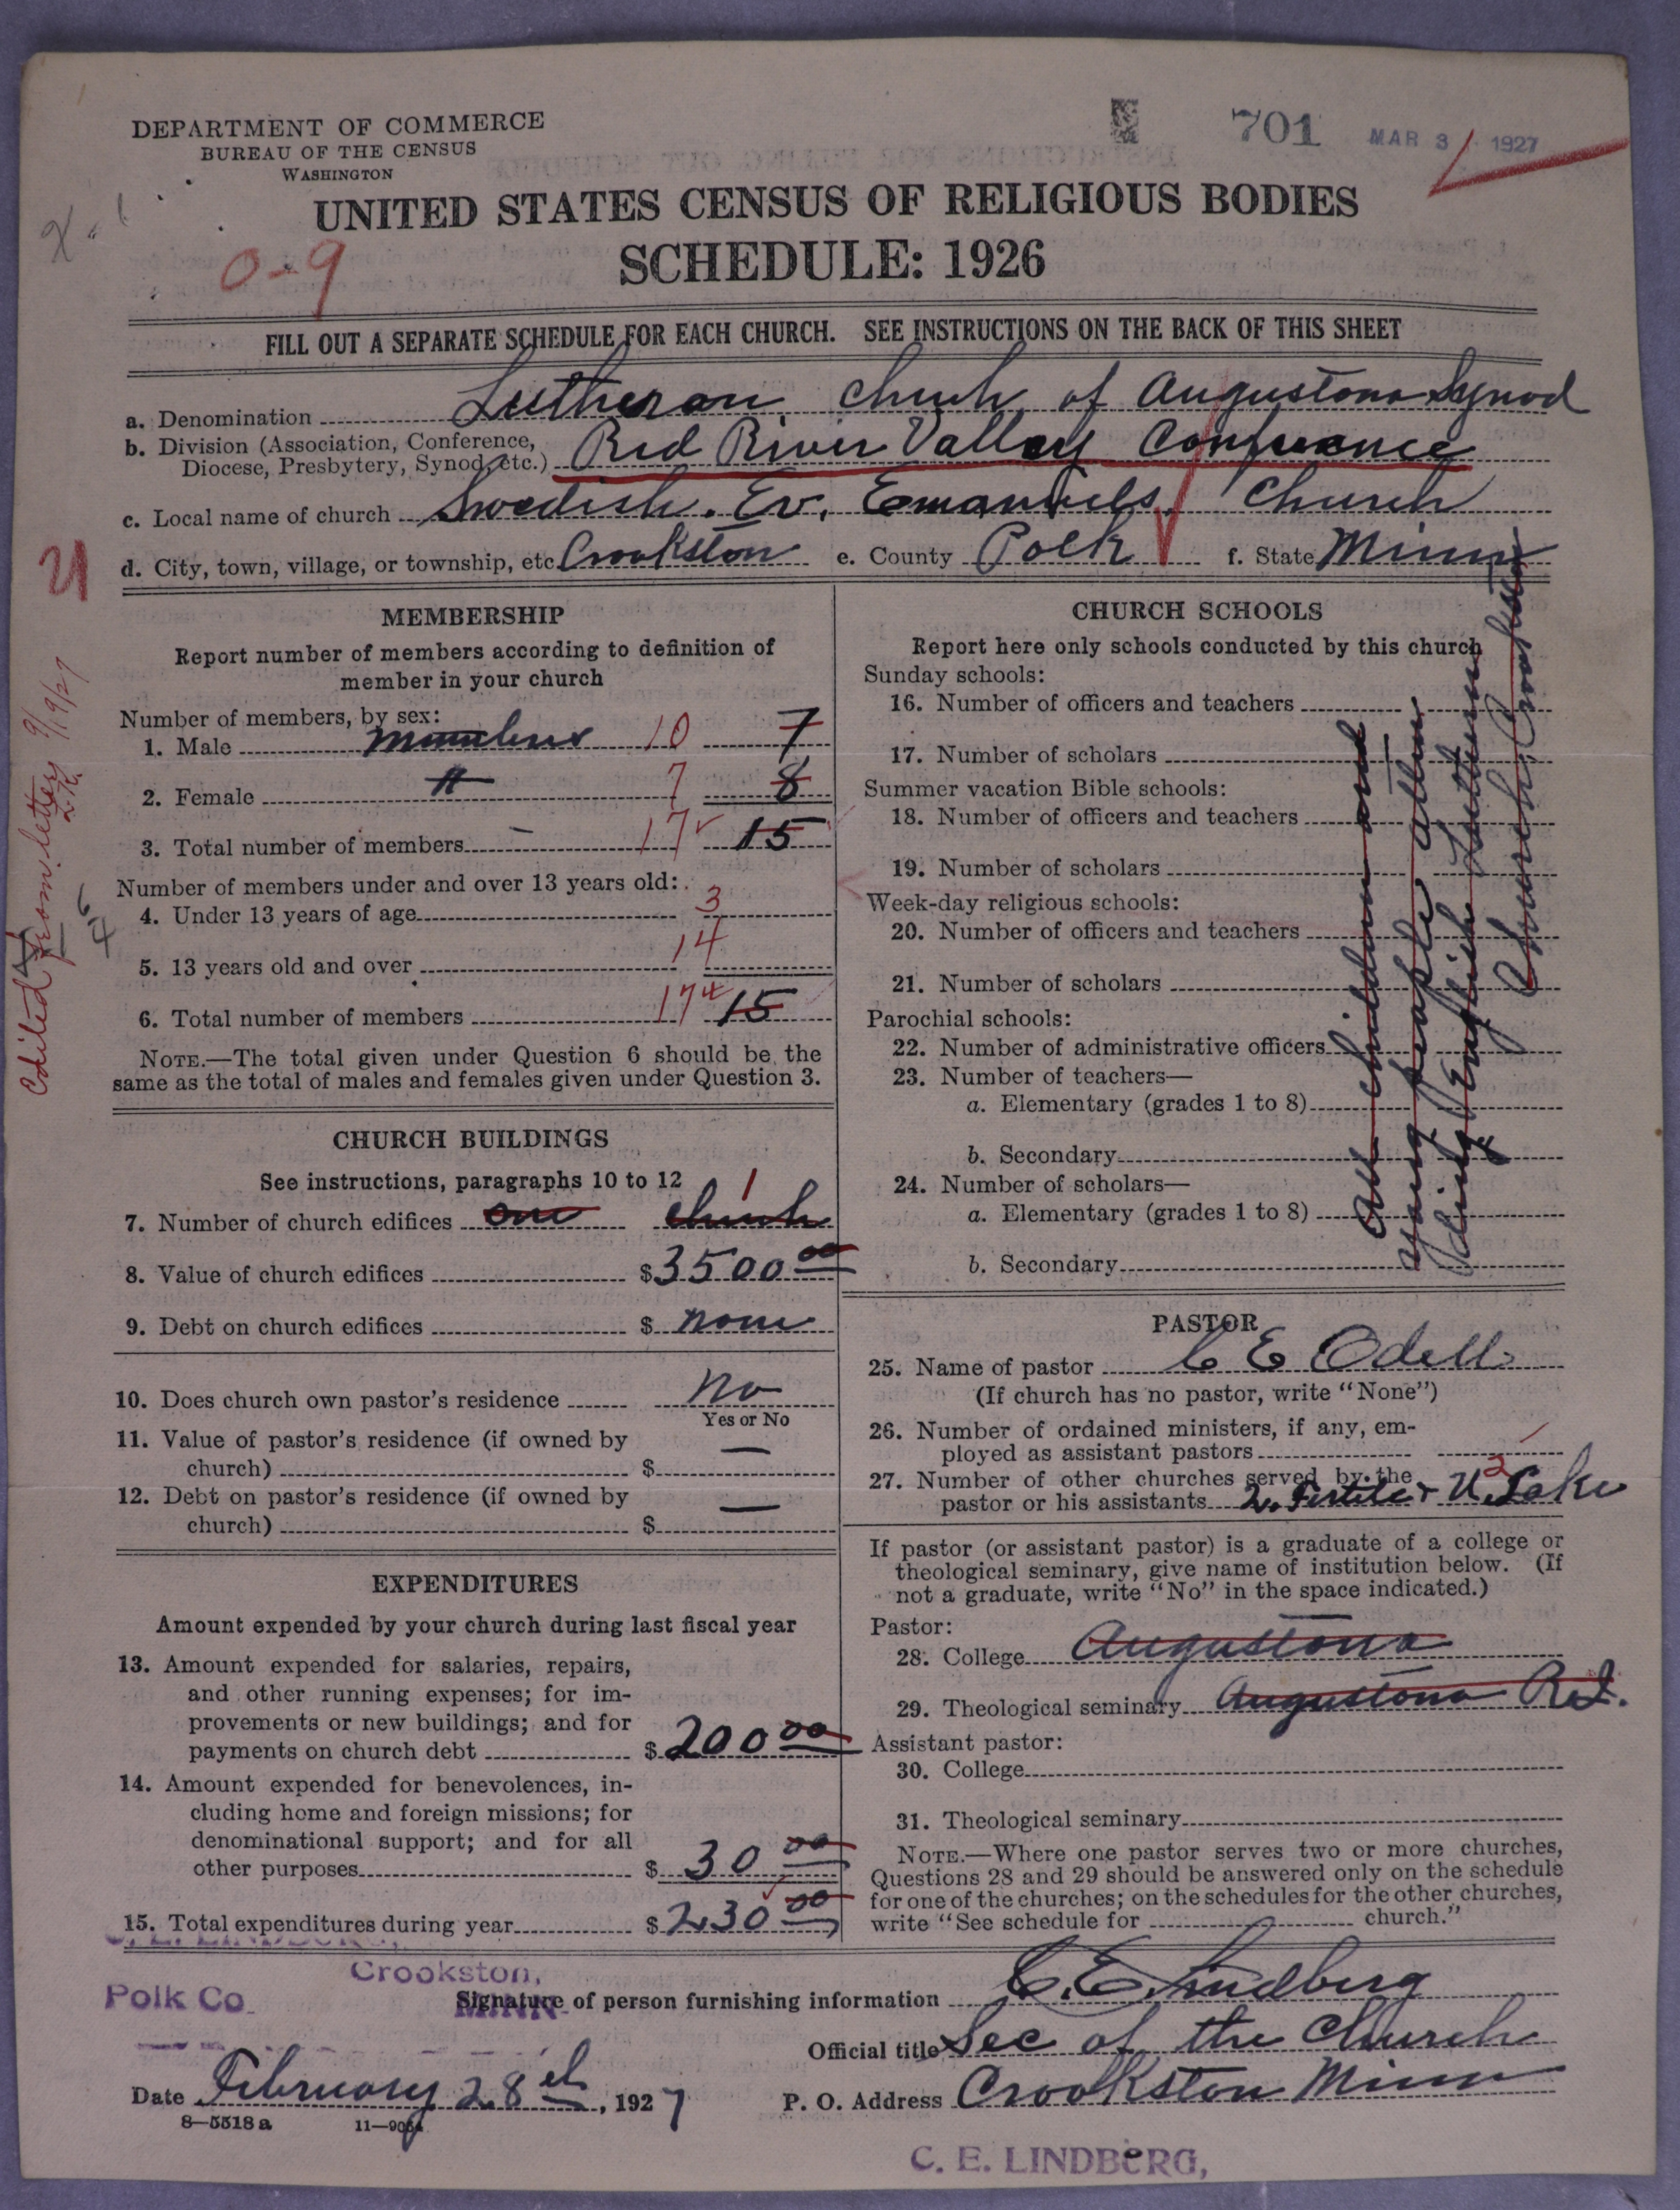 DEPARTMENT OF COMMERCE
BUREAU OF THE CENSUS
WASHINGTON
701 MAR 3 1927
UNITED STATES CENSUS OF RELIGIOUS BODIES
SCHEDULE: 1926
0-9
FILL OUT A SEPARATE SCHEDULE FOR EACH CHURCH. SEE INSTRUCTIONS ON THE BACK OF THIS SHEET
a. Denomination Lutheran Church of Augustana Synod
b. Division (Association, Conference,
Diocese, Presbytery, Synod, etc.) Red River Valley Conference
c. Local name of church Swedish. Ev. Emanuels Church
d. City, town, village, or township, etc Crookston e. County Polk f. State Minn
Edited from letter 9/19/27
MEMBERSHIP
Report number of members according to definition of
member in your church
Number of members, by sex:
1. Male members 10 7
2. Female " 7 8
3. Total number of members 17 15
Number of members under and over 13 years old:
4. Under 13 years of age 3
5. 13 years old and over 14
6. Total number of members 17 15
NOTE.—The total given under Question 6 should be the
same as the total of males and females given under Question 3.
CHURCH BUILDINGS
See instructions, paragraphs 10 to 12
7. Number of church edifices one church 1
8. Value of church edifices $ 3500 00
9. Debt on church edifices $ none
10. Does church own pastor's residence No
Yes or No
11. Value of pastor's residence (if owned by
church) $ —
12. Debt on pastor's residence (if owned by
church) $ —
EXPENDITURES
Amount expended by your church during last fiscal year
13. Amount expended for salaries, repairs,
and other running expenses; for im-
provements or new buildings; and for
payments on church debt $ 200 00
14. Amount expended for benevolences, in-
cluding home and foreign missions; for
denominational support; and for all
other purposes $ 30 00
15. Total expenditures during year $ 230 00
CHURCH SCHOOLS
Report here only schools conducted by this church
Sunday schools:
16. Number of officers and teachers
17. Number of scholars
Summer vacation Bible schools:
18. Number of officers and teachers
19. Number of scholars
Week-day religious schools:
20. Number of officers and teachers
21. Number of scholars
Parochial schools:
22. Number of administrative officers
23. Number of teachers—
a. Elementary (grades 1 to 8)
b. Secondary
24. Number of scholars—
a. Elementary (grades 1 to 8)
b. Secondary
All children and
young people atten
ding English Lutheran
Church. Crookston
PASTOR
25. Name of pastor C E Odell
(If church has no pastor, write "None")
26. Number of ordained ministers, if any, em-
ployed as assistant pastors
27. Number of other churches served by the 2
pastor or his assistants 2. Fertile & U. Lake
If pastor (or assistant pastor) is a graduate of a college or
theological seminary, give name of institution below. (If
not a graduate, write "No" in the space indicated.)
Pastor:
28. College Augustana
29. Theological seminary Augustana R.I.
Assistant pastor:
30. College
31. Theological seminary
NOTE.—Where one pastor serves two or more churches,
Questions 28 and 29 should be answered only on the schedule
for one of the churches; on the schedules for the other churches,
write "See schedule for church."
C. E. LINDBERG,
Crookston,
Polk Co. MINN.
Signature of person furnishing information C. E. Lindberg
Official title Sec of the Church
Date February 28th, 1927 P. O. Address Crookston Minn
8—5518 a 11—9054
C. E. LINDBERG,